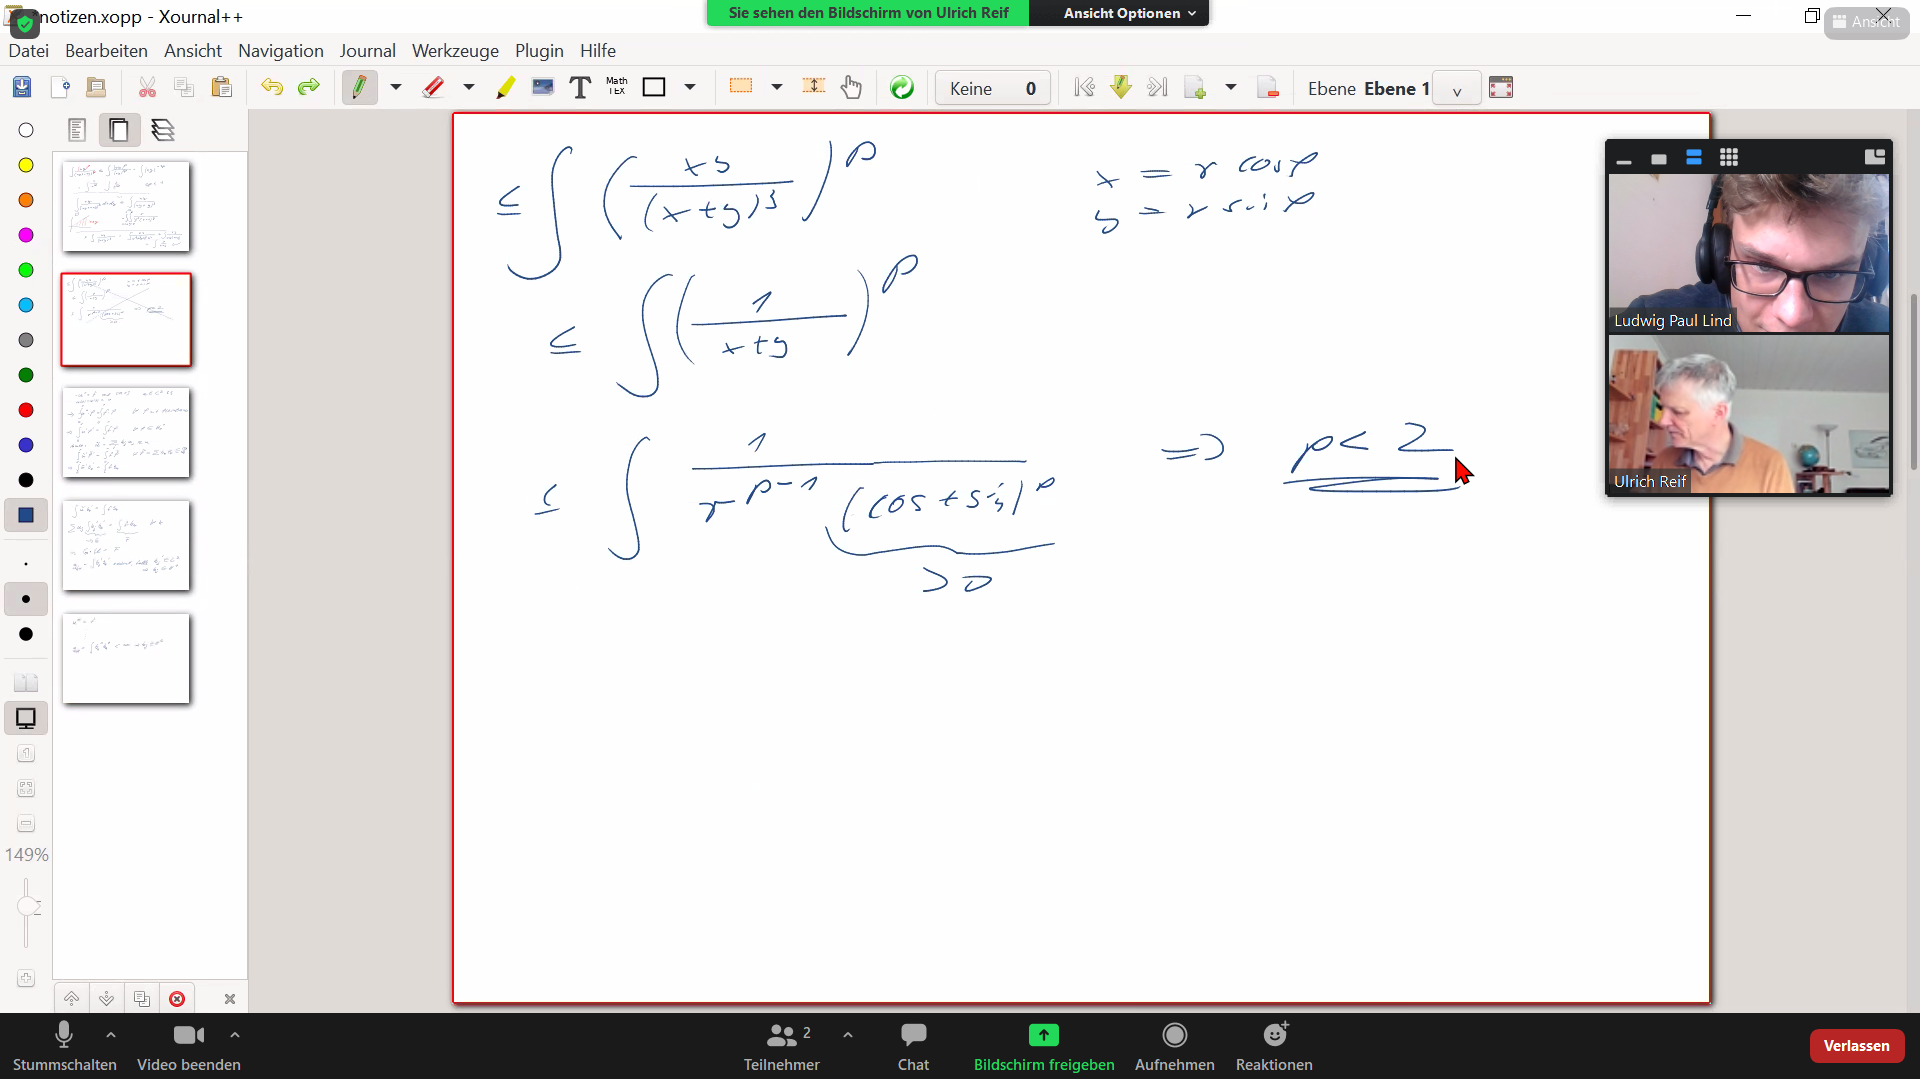 *notizen.xopp - Xournal++
Sie sehen den Bildschirm von Ulrich Reif
Ansicht Optionen
Ansicht
Datei Bearbeiten Ansicht Navigation Journal Werkzeuge Plugin Hilfe
Math
TEX
T
Keine 0
Ebene Ebene 1
≤ ∫ (xy / (x+y)³)^p
x = r cos φ
y = r sin φ
≤ ∫ (1 / x+y)^p
≤ ∫ 1 / r^{p-1} (cos + sin)^p
> 0
=> p < 2
Ludwig Paul Lind
Ulrich Reif
149%
Stummschalten
Video beenden
2
Teilnehmer
Chat
Bildschirm freigeben
Aufnehmen
Reaktionen
Verlassen